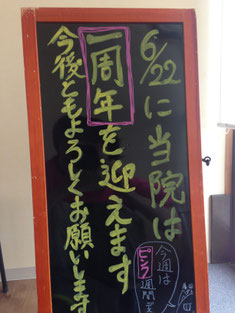 6/22に当院は
一周年を迎えます
今後ともよろしくお願いします
今週は
ピンク週間デス